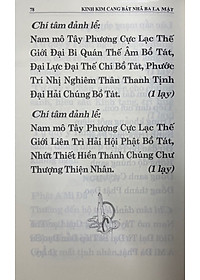 78 KINH KIM CANG BÁT NHÃ BA LA MẬT
Chí tâm đảnh lễ:
Nam mô Tây Phương Cực Lạc Thế
Giới Đại Bi Quán Thế Âm Bồ Tát,
Đại Lực Đại Thế Chí Bồ Tát, Phước
Trí Nhị Nghiêm Thân Thanh Tịnh
Đại Hải Chúng Bồ Tát. (1 lạy)
Chí tâm đảnh lễ:
Nam mô Tây Phương Cực Lạc Thế
Giới Liên Trì Hải Hội Phật Bồ Tát,
Nhứt Thiết Hiền Thánh Chúng Chư
Thượng Thiện Nhân. (1 lạy)